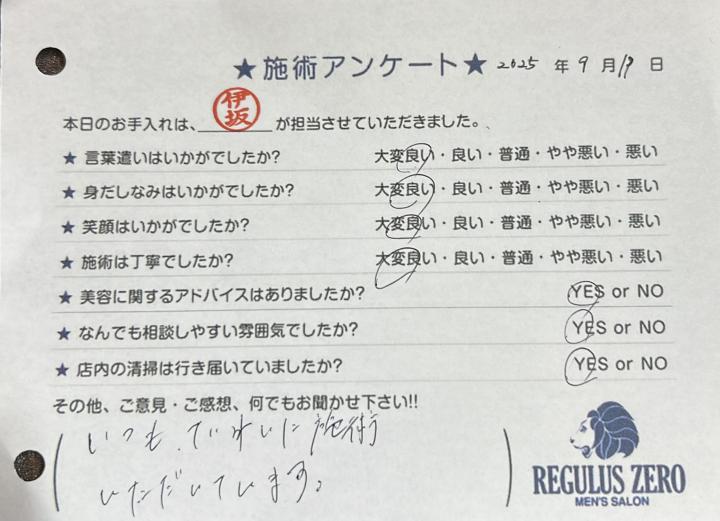 ★施術アンケート★ 2025 年 9 月 17 日
本日のお手入れは、伊坂が担当させていただきました。
★ 言葉遣いはいかがでしたか? 大変良い・良い・普通・やや悪い・悪い
★ 身だしなみはいかがでしたか? 大変良い・良い・普通・やや悪い・悪い
★ 笑顔はいかがでしたか? 大変良い・良い・普通・やや悪い・悪い
★ 施術は丁寧でしたか? 大変良い・良い・普通・やや悪い・悪い
★ 美容に関するアドバイスはありましたか? YES or NO
★ なんでも相談しやすい雰囲気でしたか? YES or NO
★ 店内の清掃は行き届いていましたか? YES or NO
その他、ご意見・ご感想、何でもお聞かせ下さい!!
いつも ていねいに施術
いただいています。
REGULUS ZERO
MEN'S SALON